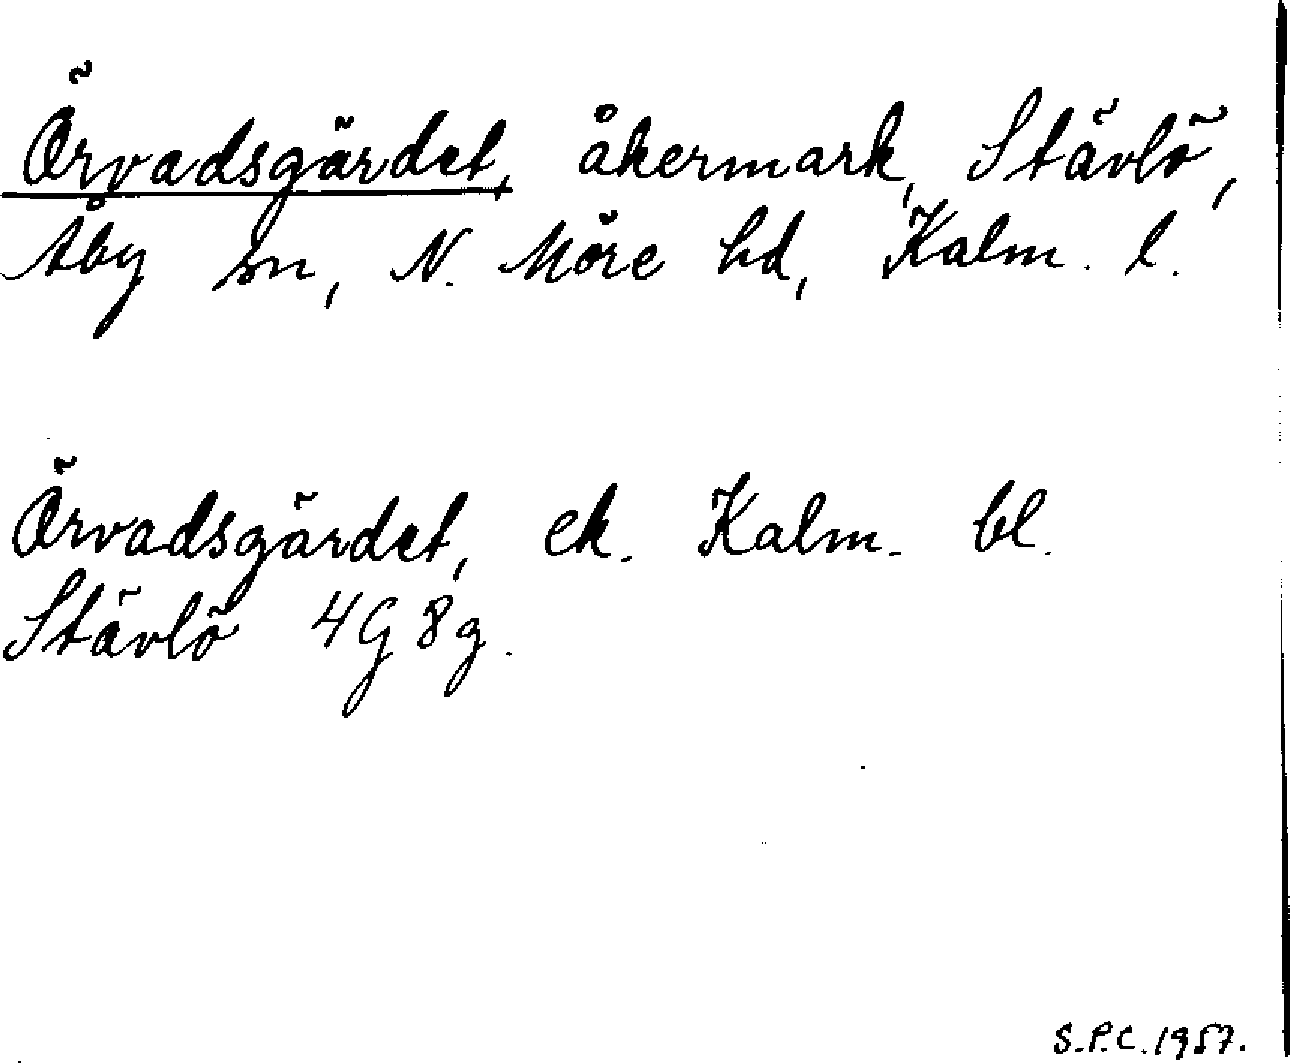 Örvadsgärdet, åkermark, Stävlö,
Åby sn, N. Möre hd, Kalm. l.
Örvadsgärdet, ek. Kalm. bl.
Stävlö 4G 8g.
S.P.C. 1957.